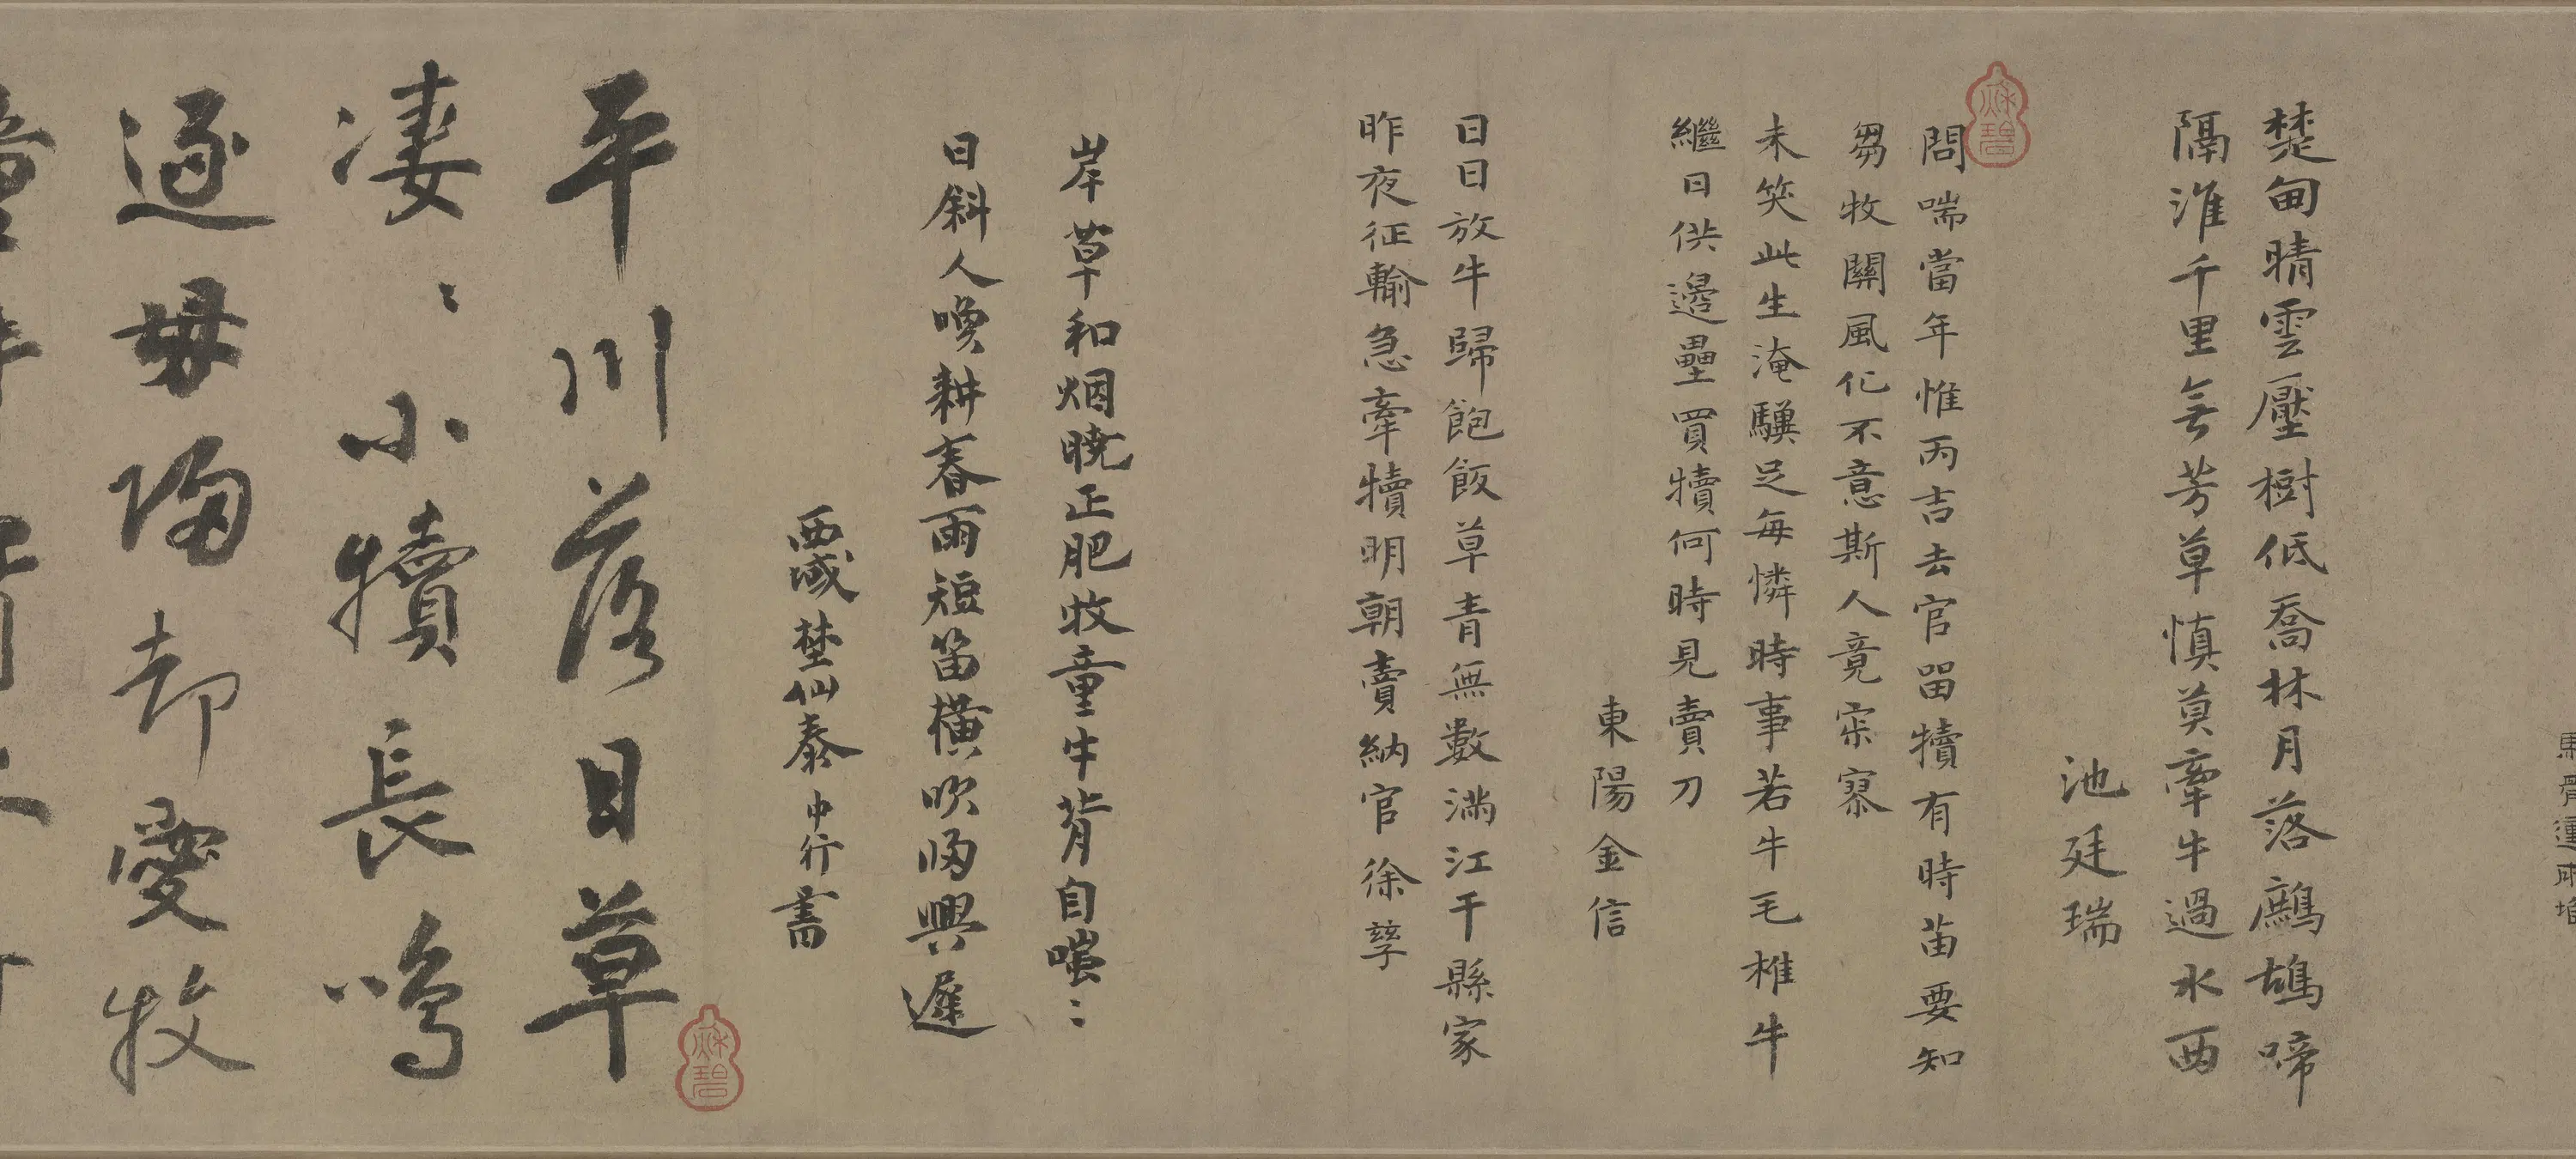 楚甸晴雲壓樹低喬林月落鷓鴣啼
隔淮千里無芳草慎莫牽牛過水西
池廷瑞
問喘當年惟丙吉去官留犢有時苗要知
芻牧關風化不意斯人竟寂寥
未笑此生淹驥足每憐時事若牛毛椎牛
繼日供邊壘買犢何時見賣刀
東陽金信
日日放牛歸飽飯草青無數滿江干縣家
昨夜征輸急牽犢明朝賣納官徐孳
岸草和烟曉正肥牧童牛背自嗤〻
日斜人喚耕春雨短笛橫吹歸興遲
西域埜仙泰中行書
平川落日草
凄〻小犢長鳴
逐母歸却愛牧